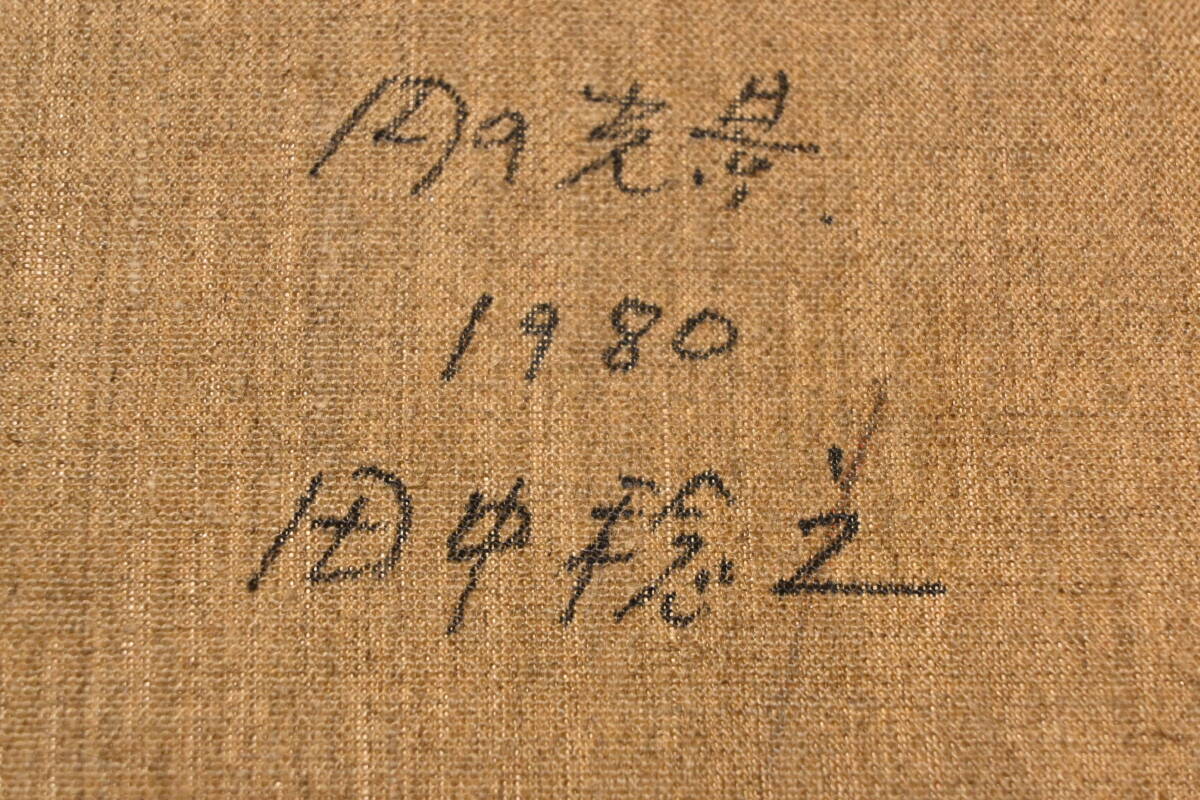 円の光景.
1980
田中稔之